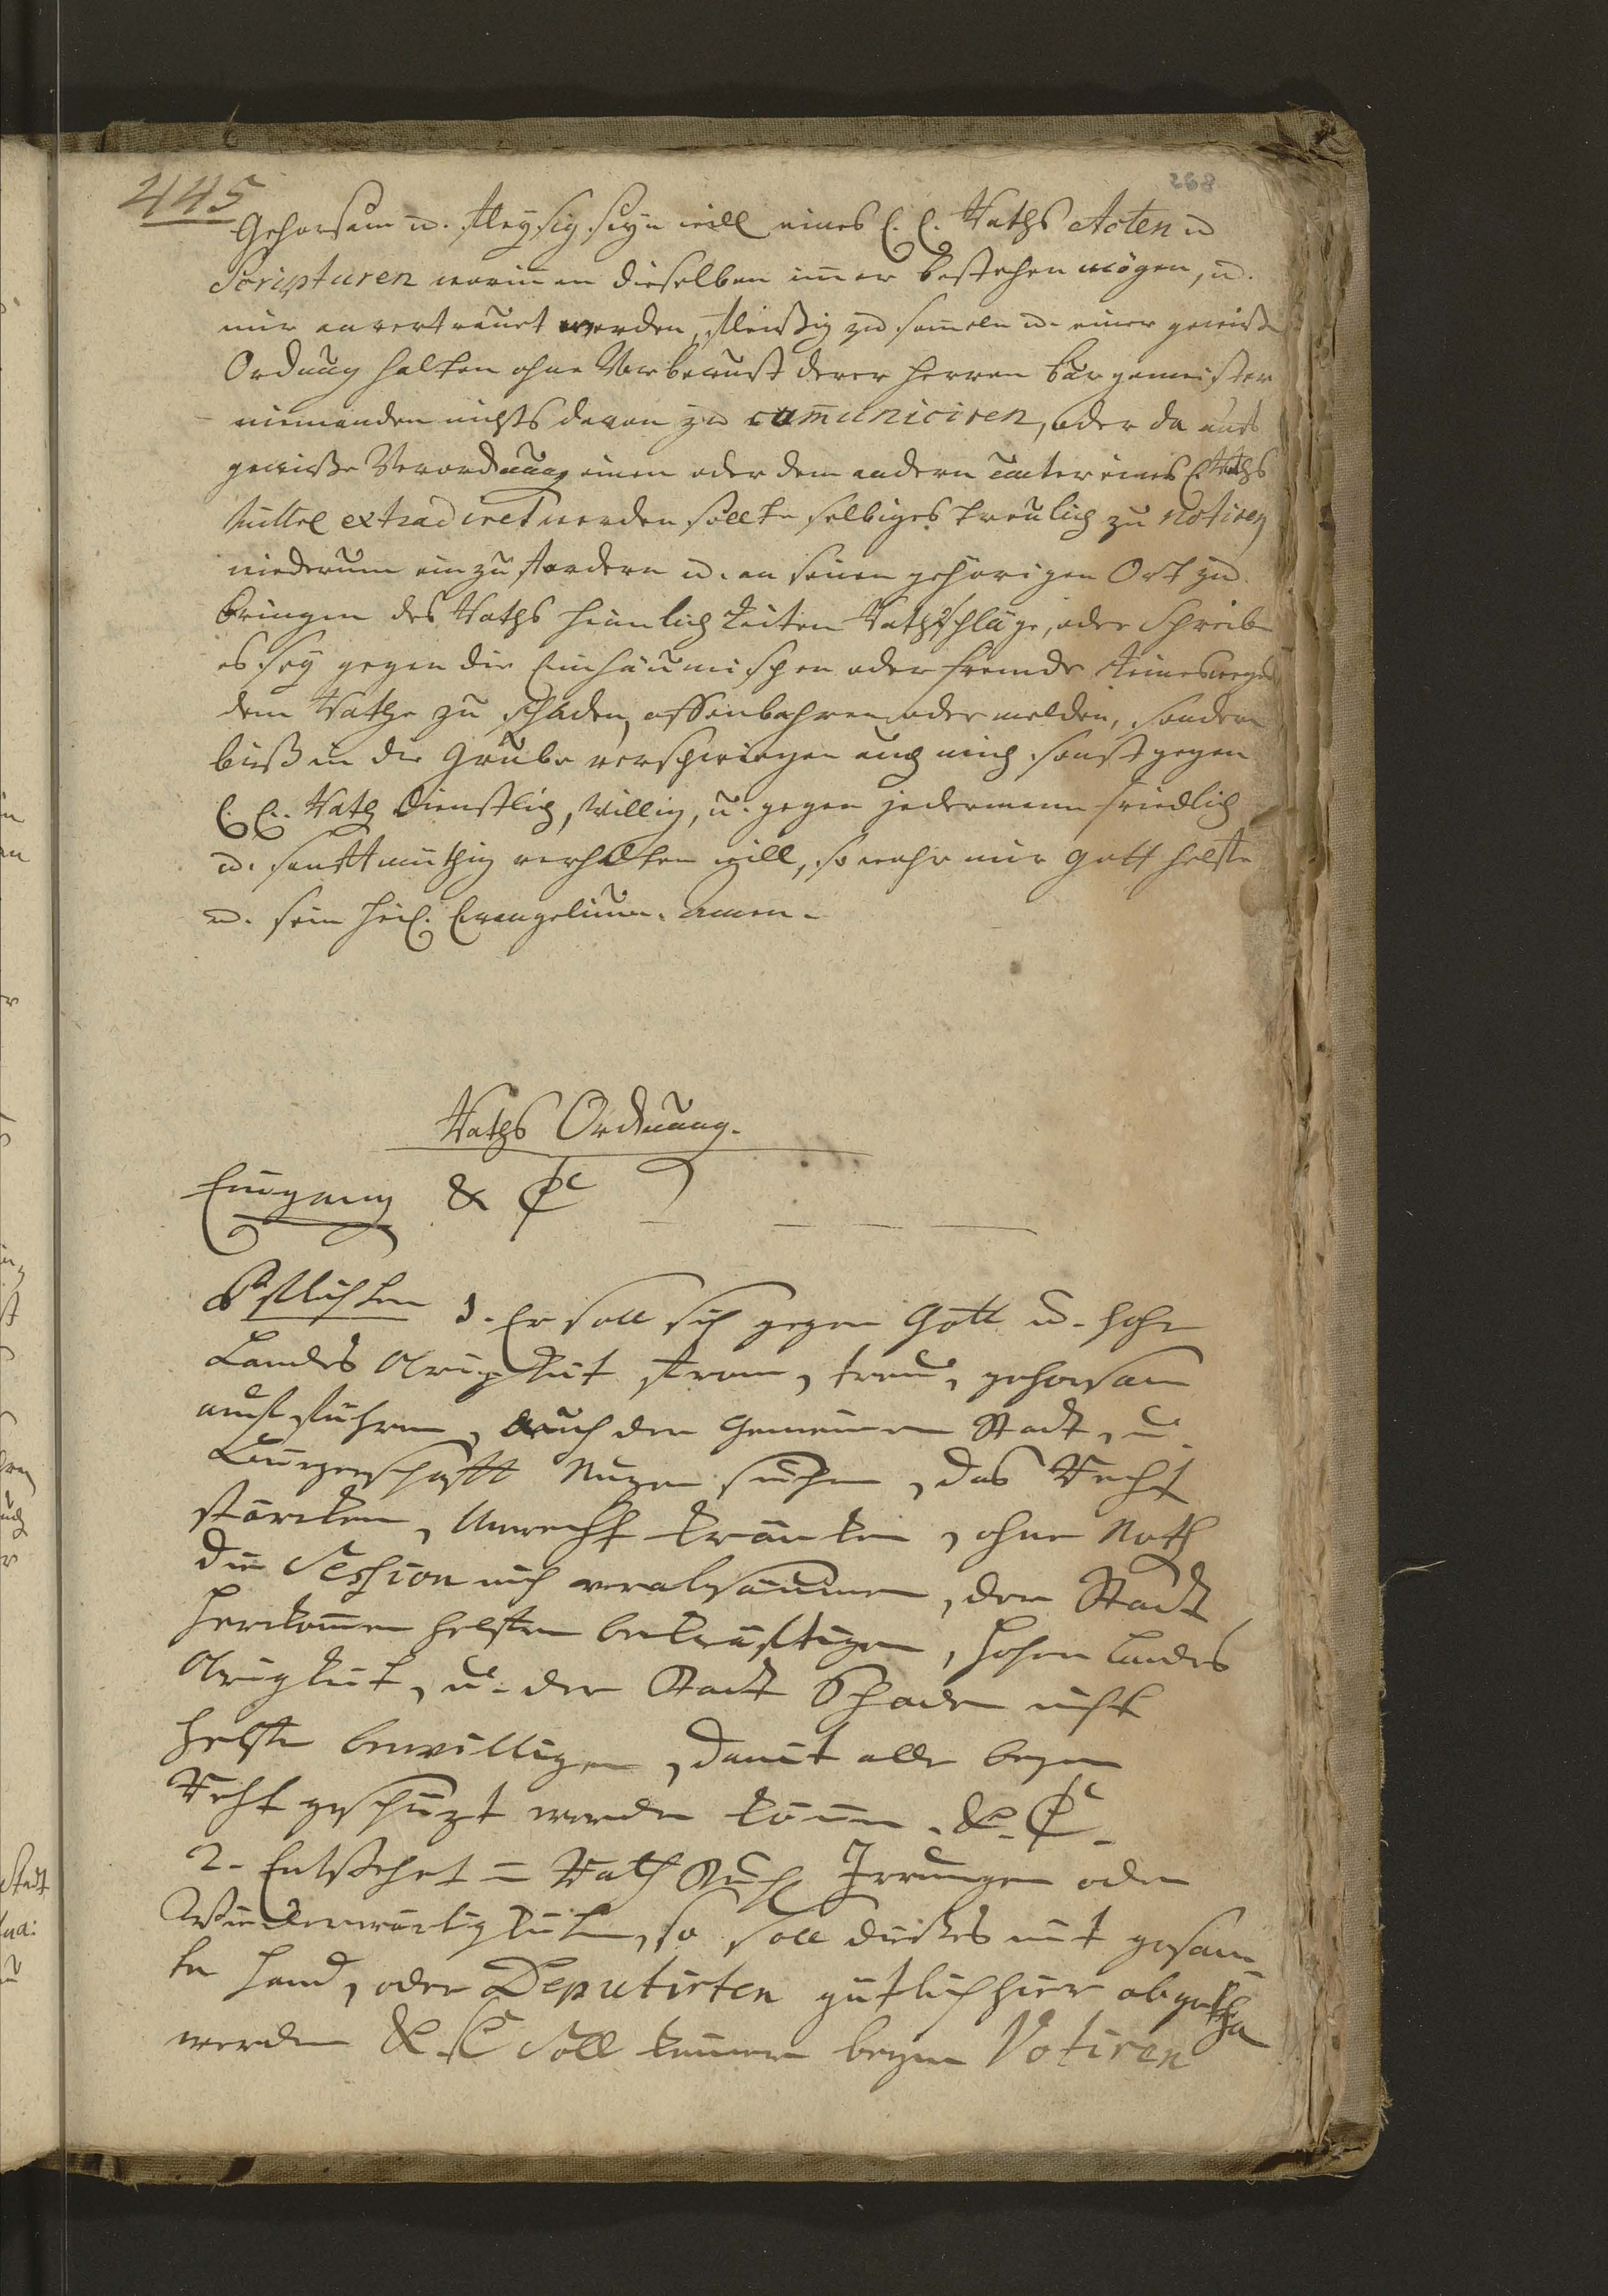 445
268
Gehorsam u. fleysig seyn will eines E. E. Raths Acten u
Scripturen worinnen dieselben im̄er bestehen mögen, u.
mir anvertrauet werden, fleißig zu sam̄eln u. einer gewiße
Ordnung halten ohne Vorbewust derer Herren Bürgemeister
niemanden nichts davon zu com̄uniciren, oder da auf
gewiße Verordnung einem oder dem andern unter eines E Raths
Mittel extradiret werden sollte selbiges treulich zu notiren
wiederum einzufordern u. an seinen gehörigen Ort zu
bringen des Raths Heimlichkeiten Rathschläge, oder Schreibe
es sey gegen die Einhäumischen oder fremde keineswegs
dem Rathe zu schaden, offenbahren oder melden, sondern
biß in die Grube verschwiegen auch mich sonst gegen
E. E. Rath Dienstlich, Willig, u. gegen jedermann friedlich
u. sanftmüthig verhalten will, so wahr mir Gott helffe
u. sein heil. Evangelium. Amen.
Raths Ordnung.
Eingang & &c
Pflichten 1. Er soll sich gegen Gott u. hohe
Landes Obrigkeit from, treu, gehorsam
auffführen, auch der Gemeinen Stadt, u.
Bürgerschafft Nuzen suchen, das Recht
stärcken, Unrecht kräncken, ohne Noth
die Session nich verabsäumen, der Stadt
Herkom̄en helffen bekräfftigen, hohen Landes
Obrigkeit, u. der Stadt Schaden nicht
helffen bewilligen, damit alle beym
Recht geschüzt werden kön̄en. & &c.
2. Entstehet = Rath Irrungen oder
Wiederwärtigkeiten, so soll dießes mit gesam̄=
ter Hand, oder Deputirten gütlich hier abgetha
werden & &c Soll keiner beym Votiren